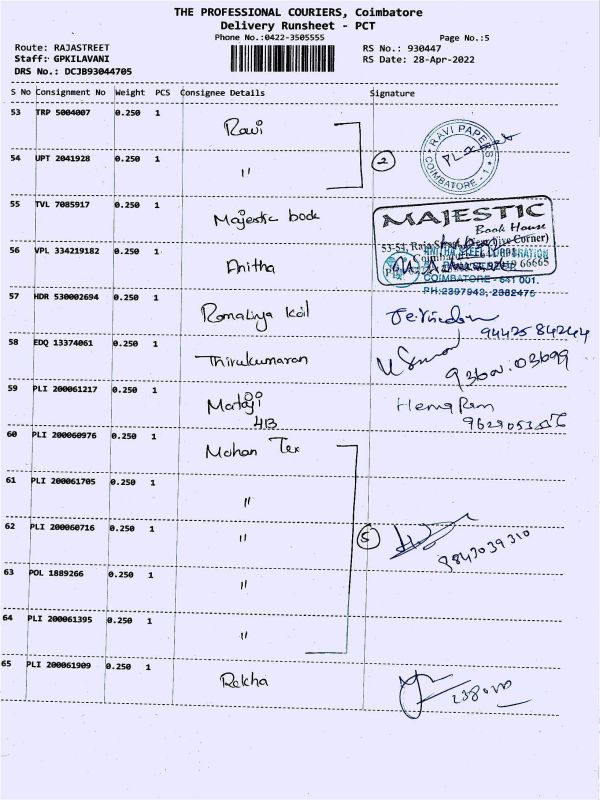 THE PROFESSIONAL COURIERS, Coimbatore
Delivery Runsheet - PCT
Phone No.:0422-3505555
Page No.:5
Route: RAJASTREET
RS No.: 930447
Staff: GPKILAVANI
RS Date: 28-Apr-2022
DRS No.: DCJB93044705
S No Consignment No Weight PCS Consignee Details Signature
53 TRP 5004007 0.250 1 Ravi
RAVI PAPERS COIMBATORE - 1
54 UPT 2041928 0.250 1 〃 2
55 TVL 7085917 0.250 1 Majestic book
MAJESTIC
Book House
56 VPL 334219182 0.250 1 Anitha
COIMBATORE - 641 001.
PH:2397943, 2382475
57 HDR 530002694 0.250 1 Ramaliya Koil
58 EDQ 13374061 0.250 1 Thirukumaran
59 PLI 200061217 0.250 1 Mataji Hema Ram
413
60 PLI 200060976 0.250 1 Mohan Tex
61 PLI 200061705 0.250 1 〃
62 PLI 200060716 0.250 1 〃 5 8843039310
63 POL 1889266 0.250 1 〃
64 PLI 200061395 0.250 1 〃
65 PLI 200061909 0.250 1 Rekha